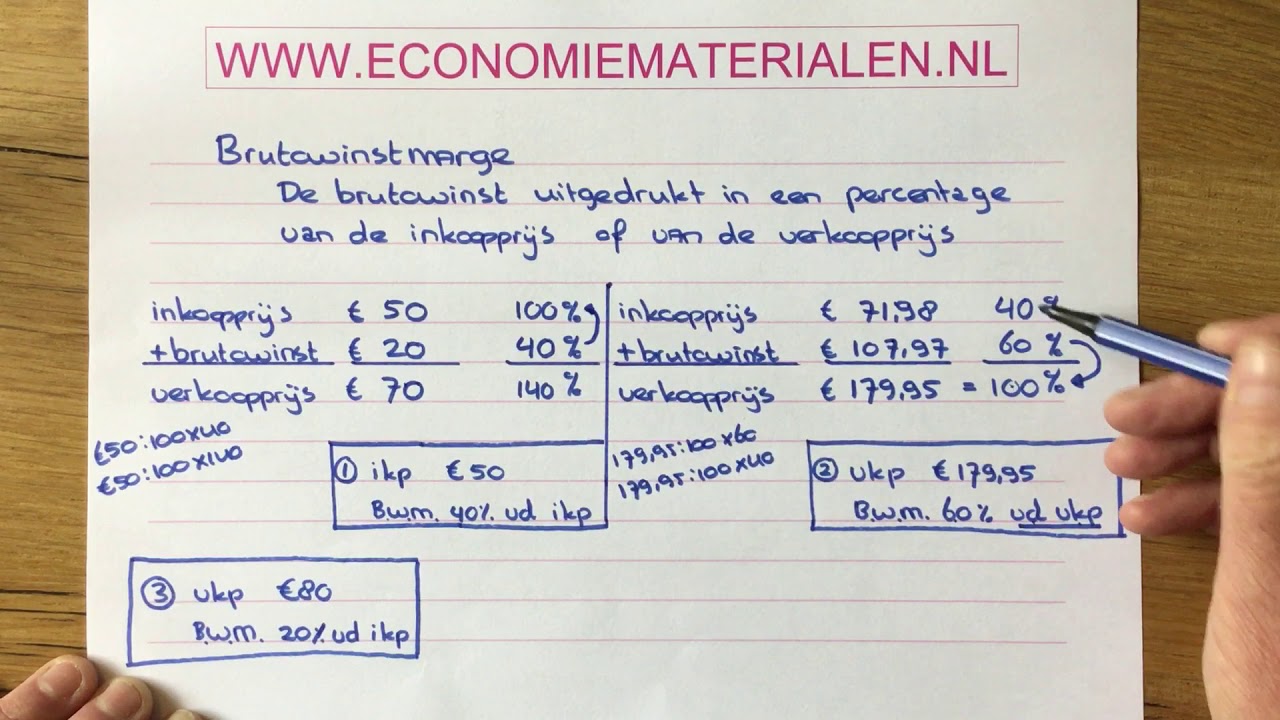 WWW.ECONOMIEMATERIALEN.NL
Brutowinstmarge
De brutowinst uitgedrukt in een percentage
van de inkoopprijs of van de verkoopprijs
inkoopprijs € 50 100%
+brutowinst € 20 40%
verkoopprijs € 70 140%
€50:100x40
€50:100x140
① ikp €50
B.w.m. 40% vd ikp
inkoopprijs € 71,98 40%
+brutowinst € 107,97 60%
verkoopprijs € 179,95 = 100%
179,95:100x60
179,95:100x40
② vkp €179,95
B.w.m. 60% vd vkp
③ vkp €80
B.w.m. 20% vd ikp